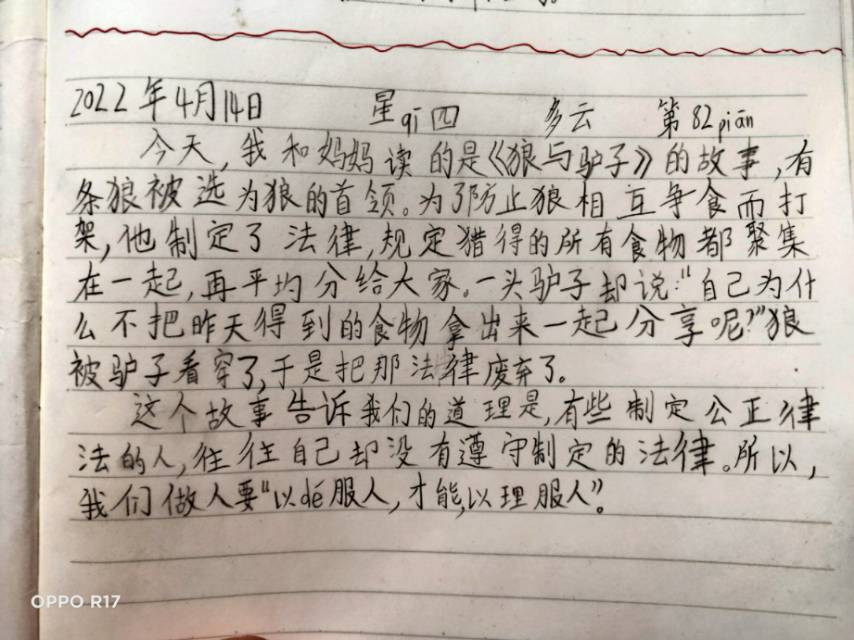 2022年4月14日 星qī四 多云 第82piān
今天,我和妈妈读的是《狼与驴子》的故事,有
条狼被选为狼的首领。为了防止狼相互争食而打
架,他制定了法律,规定猎得的所有食物都聚集
在一起,再平均分给大家。一头驴子却说:"自己为什
么不把昨天得到的食物拿出来一起分享呢?"狼
被驴子看穿了,于是把那法律废弃了。
这个故事告诉我们的道理是,有些制定公正律
法的人,往往自己却没有遵守制定的法律。所以,
我们做人要"以dé服人,才能,以理服人"。
OPPO R17